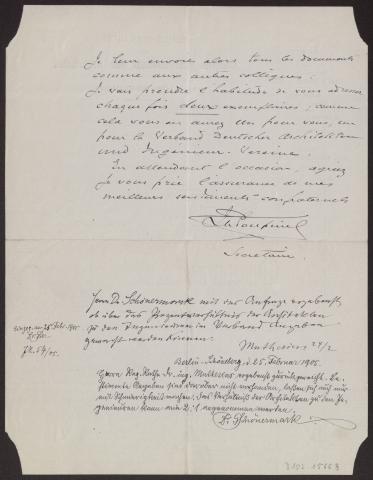 Je leur envoie alors tous les documents
comme aux autres collègues.
Je vais prendre l'habitude de vous adresser
chaque fois deux exemplaires; comme
cela vous en aurez un pour vous, un
pour le Verband Deutscher Architekten
und Ingenieur-Vereine.
En attendant l'occasion, agréez
je vous prie l'assurance de mes
meilleurs sentiments confraternels
Poupinel
Secrétaire.
Herrn Dr. Schönermark mit der Anfrage ergebenst
ob über das Prozentverhältnis der Architekten
zu den Ingenieuren im Verband Angaben
gemacht werden können.
Muthesius 24/2
Berlin-Schöneberg, d. 25. Februar 1905.
Herrn Reg. Rath Dr. ing. Muthesius ergebenst zurückgereicht. Be-
stimmte Angaben sind darüber nicht vorhanden, lassen sich auch nur
mit Schwierigkeit machen. Das Verhältniß der Architekten zu den In-
genieuren kann wie 2:1 angenommen werden.
Dr. Schönermark